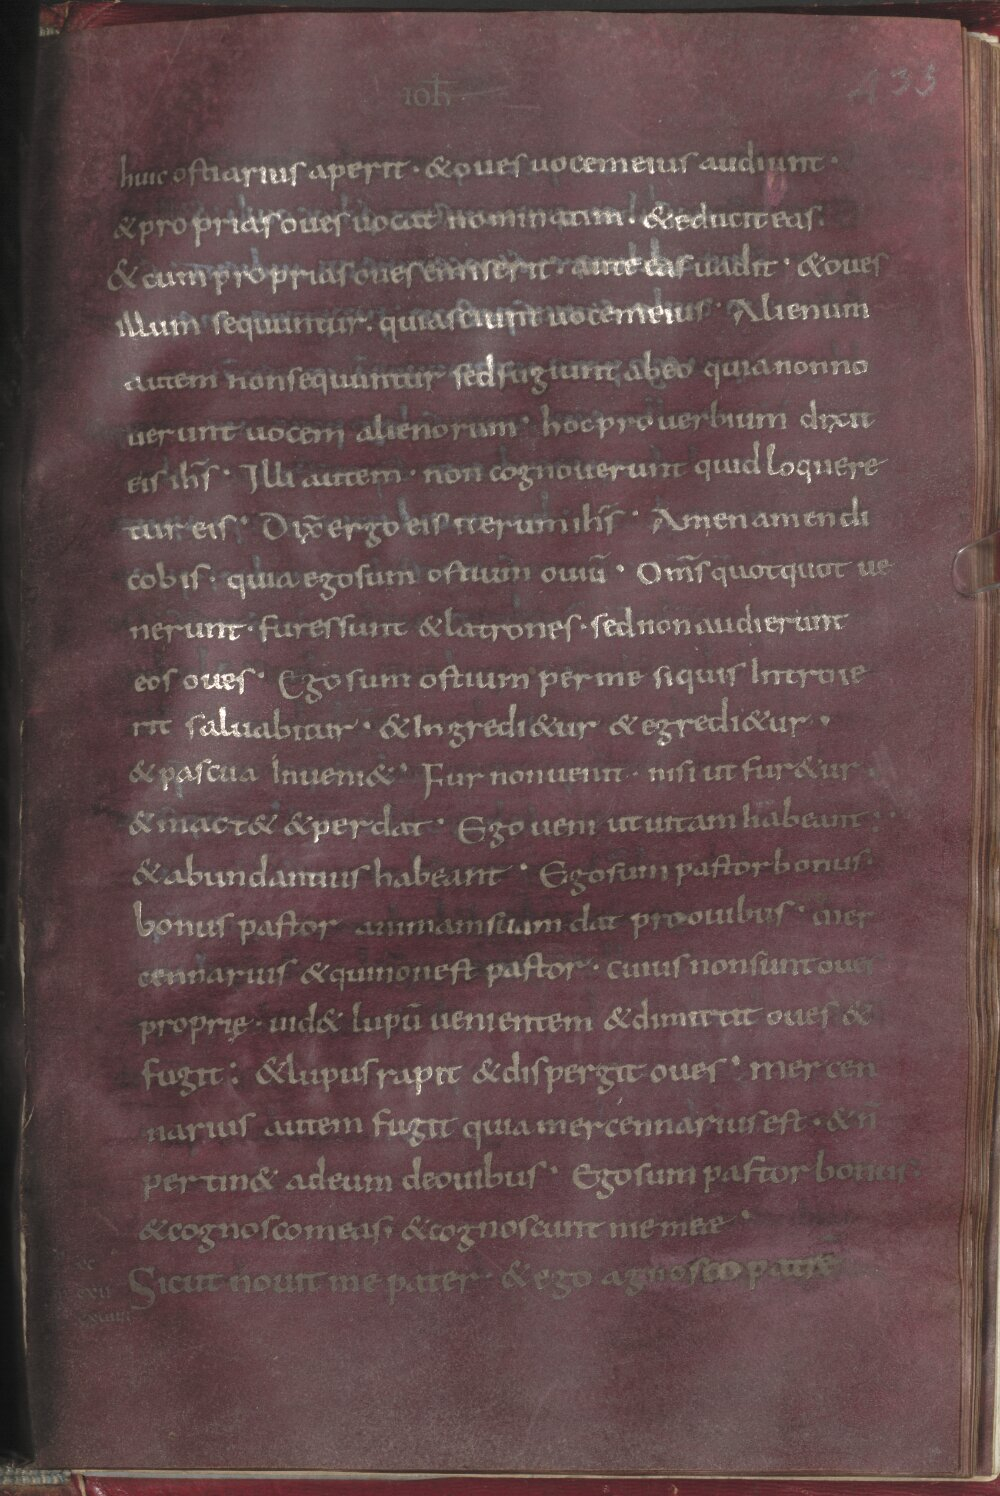 ioh 433
huic ostiarius aperit · & oues uocem eius audiunt ·
& proprias oues uocat nominatim · & educit eas ·
& cum proprias oues emiserit · ante eas uadit · & oues
illum sequuntur · quia sciunt uocem eius · Alienum
autem non sequuntur sed fugiunt ab eo quia non no
uerunt uocem alienorum · hoc prouerbium dixit
eis ih̅s · Illi autem · non cognouerunt quid loquere
tur eis · Dix̅ ergo eis iterum ih̅s · Amen amen di
co bis · quia ego sum ostium ouiū · Om̅s quotquot ue
nerunt · fures sunt & latrones · sed non audierunt
eos oues · Ego sum ostium per me si quis Introie
rit saluabitur · & Ingredi&ur & egredi&ur ·
& pascua Inueni& · Fur non uenit · nisi ut fur&ur
& mact& & perdat · Ego ueni ut uitam habeant ·
& abundantius habeant · Ego sum pastor bonus ·
bonus pastor animam suam dat pro ouibus · mer
cennarius & qui non est pastor · cuius non sunt oues
proprię · uid& lupū uenientem & dimittit oues &
fugit : & lupus rapit & dispergit oues · mercen
narius autem fugit quia mercennarius est · & n̅
pertin& ad eum de ouibus · Ego sum pastor bonus
& cognosco meas · & cognoscunt me meae ·
Sicut nouit me pater · & ego agnosco patrē